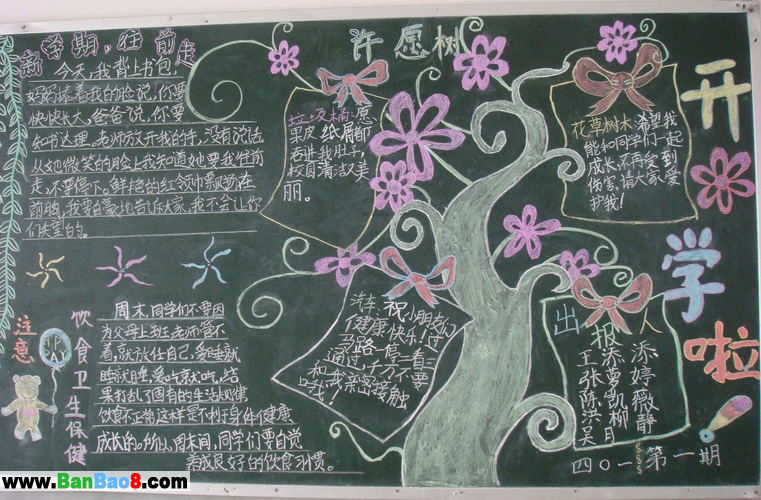 新学期,往前走
今天,我背上书包,
妈妈捧着我的脸说,你要
快快长大,爸爸说,你要
知书达理。老师放开我的手,没有说话
从她微笑的脸上我知道她要我往前
走,不要停下。鲜艳的红领巾飘扬在
前胸,我要自豪地告诉大家,我不会让你
们失望的。
注意
饮食卫生保健
周末,同学们不要因
为父母上班,老师管不
着,就放任自己,爱睡就
睡就睡,爱吃就吃,结
果打乱了固有的生活规律
饮食不正常这样是不利于身体健康
成长的。所以,周末间,同学们要自觉
养成良好的饮食习惯。
许愿树
垃圾桶:愿
果皮 纸屑都
吞进我肚子,
校园清洁又美
丽。
花草树木:希望我
能和同学们一起
成长,不再受到
伤害。请大家爱
护我!
汽车:祝小朋友们
健康快乐!过
马路一停二看三
通过,千万不要
和我亲密接触
哦!
开学啦
出报人
王添添
张萝婷
陈凯薇
洪柳静
月
四〇一 第一期
www.BanBao8.com